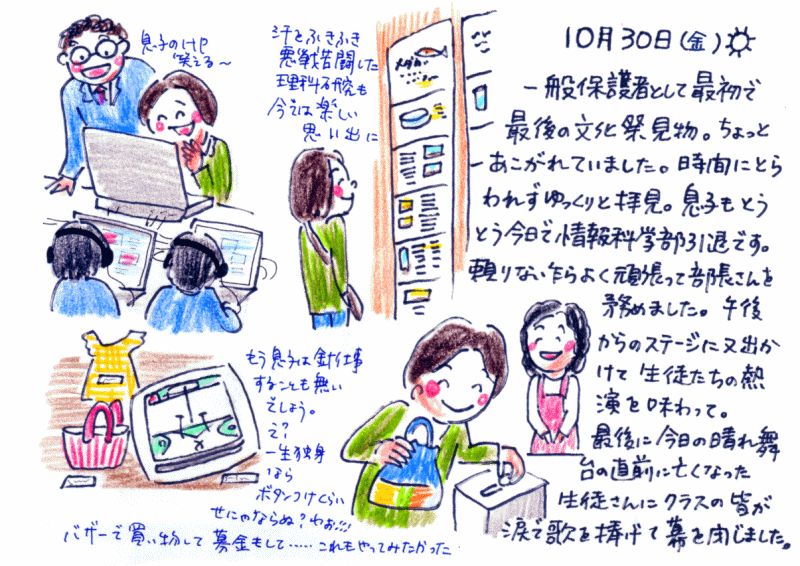 息子のHP
笑える〜
汗をふきふき
悪戦苦闘した
理科研究も
今では楽しい
思い出に
10月30日(金)
一般保護者として最初で
最後の文化祭見物。ちょっと
あこがれていました。時間にとら
われずゆっくりと拝見。息子もとう
とう今日で情報科学部引退です。
頼りない乍らよく頑張って部長さんを
務めました。午後
からのステージに又出か
けて生徒たちの熱
演を味わって。
最後に今日の晴れ舞
台の直前に亡くなった
生徒さんにクラスの皆が
涙で歌を捧げて幕を閉じました。
もう息子は針仕事
することも無い
でしょう。
え?
一生独身
なら
ボタンつけくらい
せにゃならぬ?わぉ!!!
バザーで買い物して募金もして……これもやってみたかった